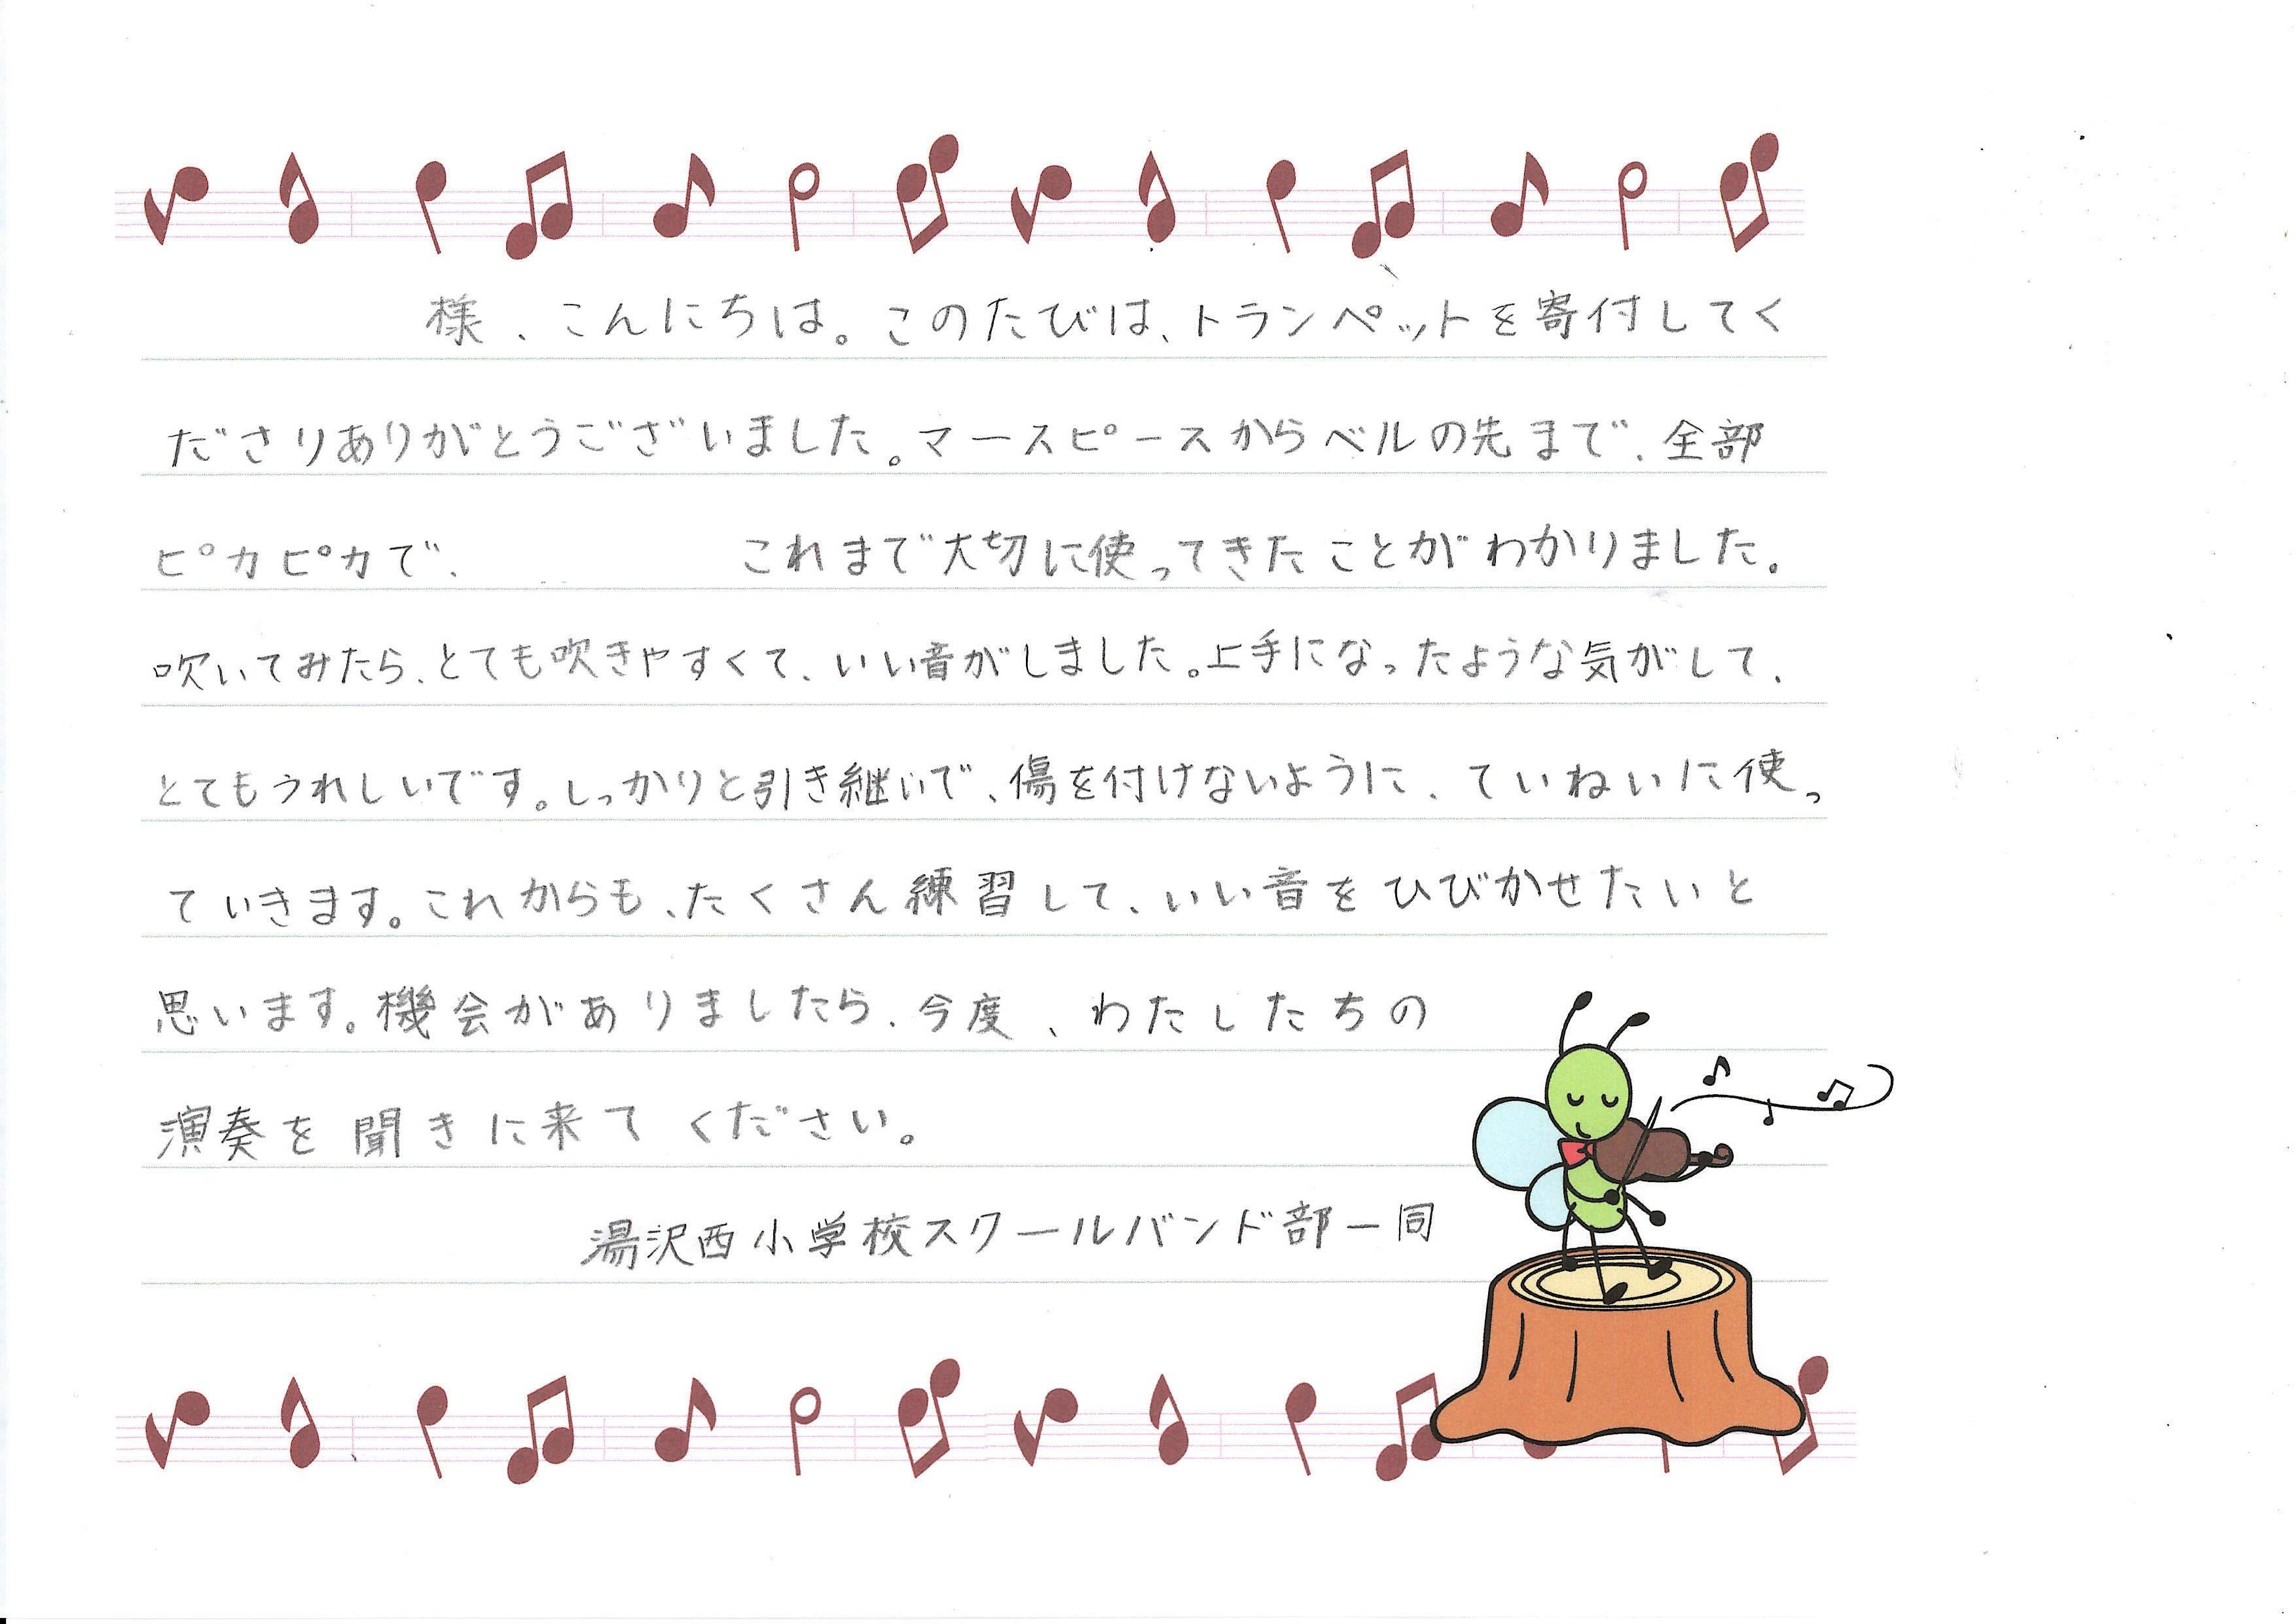 様、こんにちは。このたびは、トランペットを寄付してく
ださりありがとうございました。マースピースからベルの先まで、全部
ピカピカで、これまで大切に使ってきたことがわかりました。
吹いてみたら、とても吹きやすくて、いい音がしました。上手になったような気がして、
とてもうれしいです。しっかりと引き継いで、傷を付けないように、ていねいに使っ
ていきます。これからも、たくさん練習して、いい音をひびかせたいと
思います。機会がありましたら、今度、わたしたちの
演奏を聞きに来てください。
湯沢西小学校スクールバンド部一同